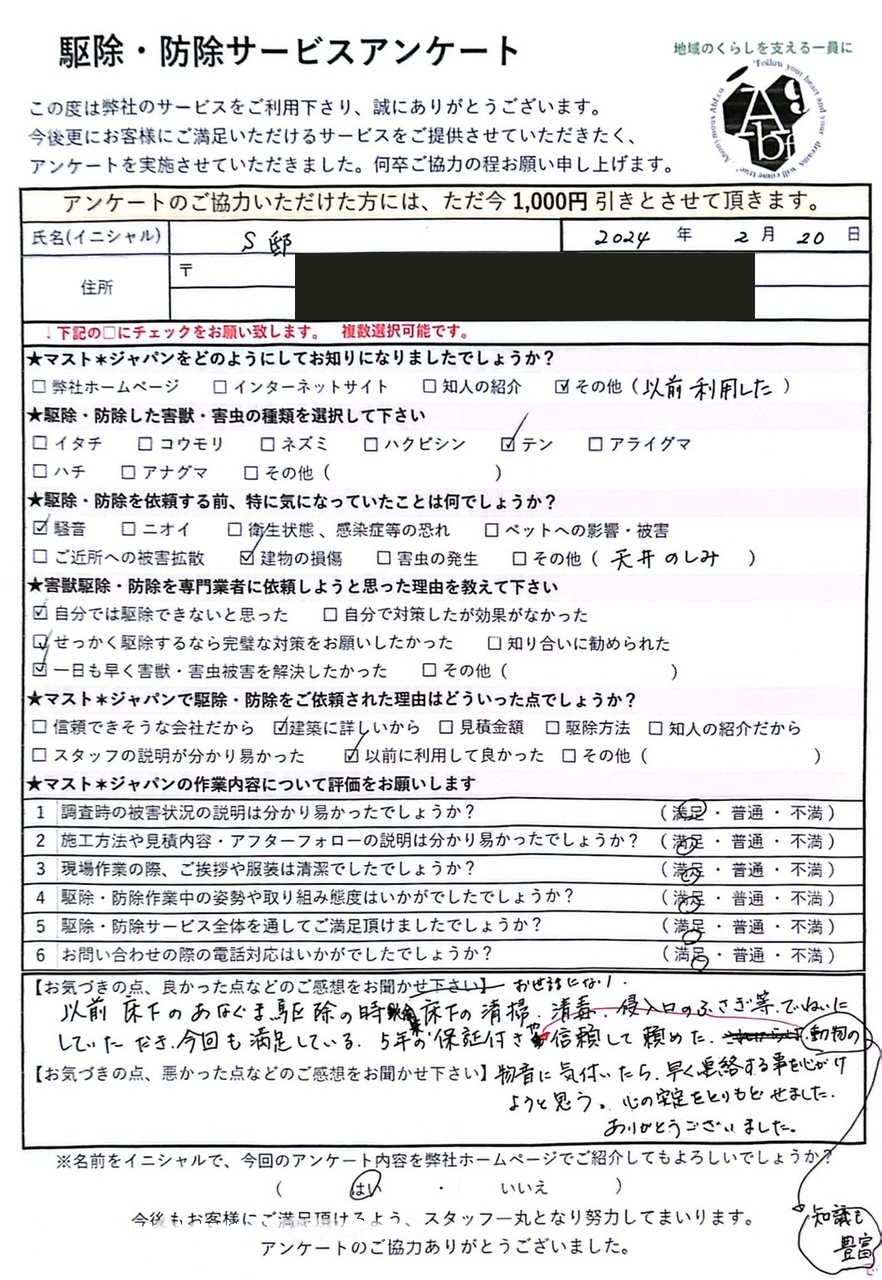 駆除・防除サービスアンケート
地域のくらしを支える一員に
"Follow your heart and your dreams will come true" Anonymous Abf co.
A9bf
この度は弊社のサービスをご利用下さり、誠にありがとうございます。
今後更にお客様にご満足いただけるサービスをご提供させていただきたく、
アンケートを実施させていただきました。何卒ご協力の程お願い申し上げます。
アンケートのご協力いただけた方には、ただ今 1,000円 引きとさせて頂きます。
氏名(イニシャル) S 邸 2024 年 2 月 20 日
住所 〒
↓下記の□にチェックをお願い致します。 複数選択可能です。
★マスト✶ジャパンをどのようにしてお知りになりましたでしょうか？
□ 弊社ホームページ □ インターネットサイト □ 知人の紹介 ☑ その他（以前利用した）
★駆除・防除した害獣・害虫の種類を選択して下さい
□ イタチ □ コウモリ □ ネズミ □ ハクビシン ☑ テン □ アライグマ
□ ハチ □ アナグマ □ その他（ ）
★駆除・防除を依頼する前、特に気になっていたことは何でしょうか？
☑ 騒音 □ ニオイ □ 衛生状態 、感染症等の恐れ □ ペットへの影響・被害
□ ご近所への被害拡散 ☑ 建物の損傷 □ 害虫の発生 □ その他（ 天井のしみ ）
★害獣駆除・防除を専門業者に依頼しようと思った理由を教えて下さい
☑ 自分では駆除できないと思った □ 自分で対策したが効果がなかった
☑ せっかく駆除するなら完璧な対策をお願いしたかった □ 知り合いに勧められた
☑ 一日も早く害獣・害虫被害を解決したかった □ その他（ ）
★マスト✶ジャパンで駆除・防除をご依頼された理由はどういった点でしょうか？
□ 信頼できそうな会社だから ☑ 建築に詳しいから □ 見積金額 □ 駆除方法 □ 知人の紹介だから
□ スタッフの説明が分かり易かった ☑ 以前に利用して良かった □ その他（ ）
★マスト✶ジャパンの作業内容について評価をお願いします
1 調査時の被害状況の説明は分かり易かったでしょうか？ （ 満足 ・ 普通 ・ 不満 ）
2 施工方法や見積内容・アフターフォローの説明は分かり易かったでしょうか？ （ 満足 ・ 普通 ・ 不満 ）
3 現場作業の際、ご挨拶や服装は清潔でしたでしょうか？ （ 満足 ・ 普通 ・ 不満 ）
4 駆除・防除作業中の姿勢や取り組み態度はいかがでしたでしょうか？ （ 満足 ・ 普通 ・ 不満 ）
5 駆除・防除サービス全体を通してご満足頂けましたでしょうか？ （ 満足 ・ 普通 ・ 不満 ）
6 お問い合わせの際の電話対応はいかがでしたでしょうか？ （ 満足 ・ 普通 ・ 不満 ）
【お気づきの点、良かった点などのご感想をお聞かせ下さい】 お世話になり.
以前 床下のあなぐま駆除の時 床下の清掃. 消毒. 侵入口のふさぎ等. ていねいに
していただき. 今回も満足している. 5年の保証付きで信頼して頼めた. 動物の
【お気づきの点、悪かった点などのご感想をお聞かせ下さい】物音に気付いたら. 早く連絡する事を心がけ
ようと思う。心の安定をとりもどせました.
ありがとうございました。
※名前をイニシャルで、今回のアンケート内容を弊社ホームページでご紹介してもよろしいでしょうか？
（ はい ・ いいえ ）
知識も
豊富
で
今後もお客様にご満足頂けるよう、スタッフ一丸となり努力してまいります。
アンケートのご協力ありがとうございました。